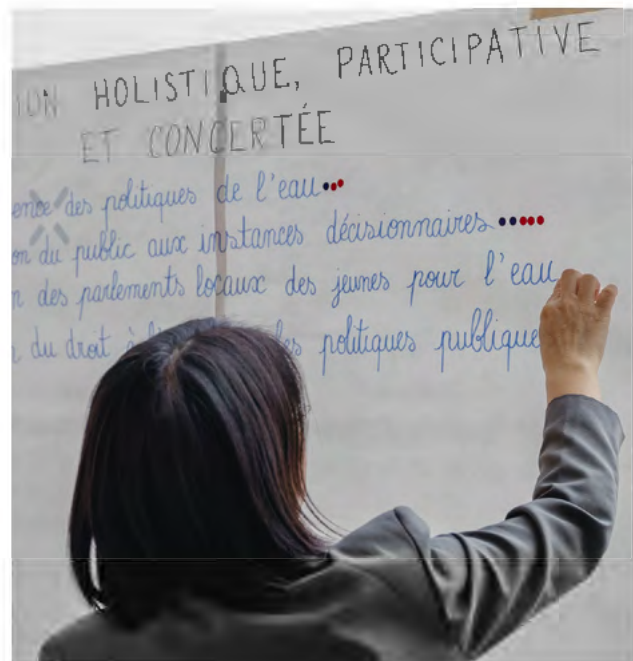 ION HOLISTIQUE, PARTICIPATIVE
ET CONCERTÉE
ence des politiques de l'eau
on du public aux instances décisionnaires
n des parlements locaux des jeunes pour l'eau
du droit à politiques publique